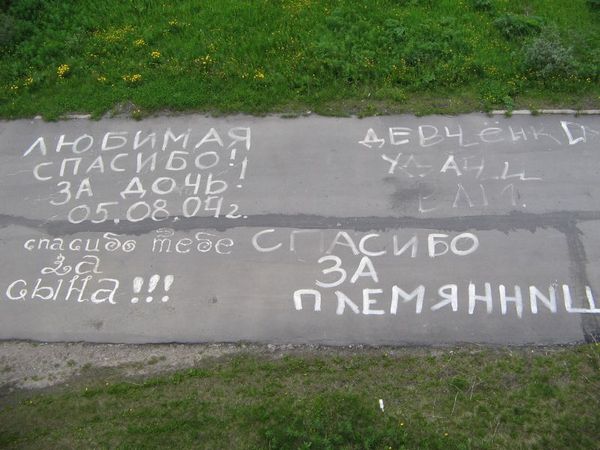 ЛЮБИМАЯ
СПАСИБО!
ЗА ДОЧЬ!
05.08.04г.
ДЕВЧЁНКИ
спасибо тебе
за
сына!!!
СПАСИБО
ЗА
ПЛЕМЯННИЦ